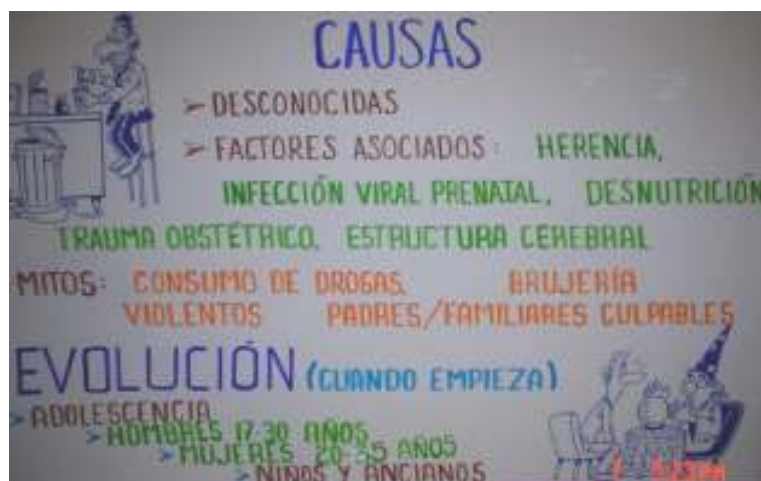 CAUSAS
➢ DESCONOCIDAS
➢ FACTORES ASOCIADOS: HERENCIA,
INFECCIÓN VIRAL PRENATAL, DESNUTRICIÓN
TRAUMA OBSTÉTRICO, ESTRUCTURA CEREBRAL
MITOS: CONSUMO DE DROGAS BRUJERÍA
VIOLENTOS PADRES/FAMILIARES CULPABLES
EVOLUCIÓN (CUANDO EMPIEZA)
➢ ADOLESCENCIA
➢ HOMBRES 17-30 AÑOS
➢ MUJERES 20-35 AÑOS
➢ NIÑOS Y ANCIANOS